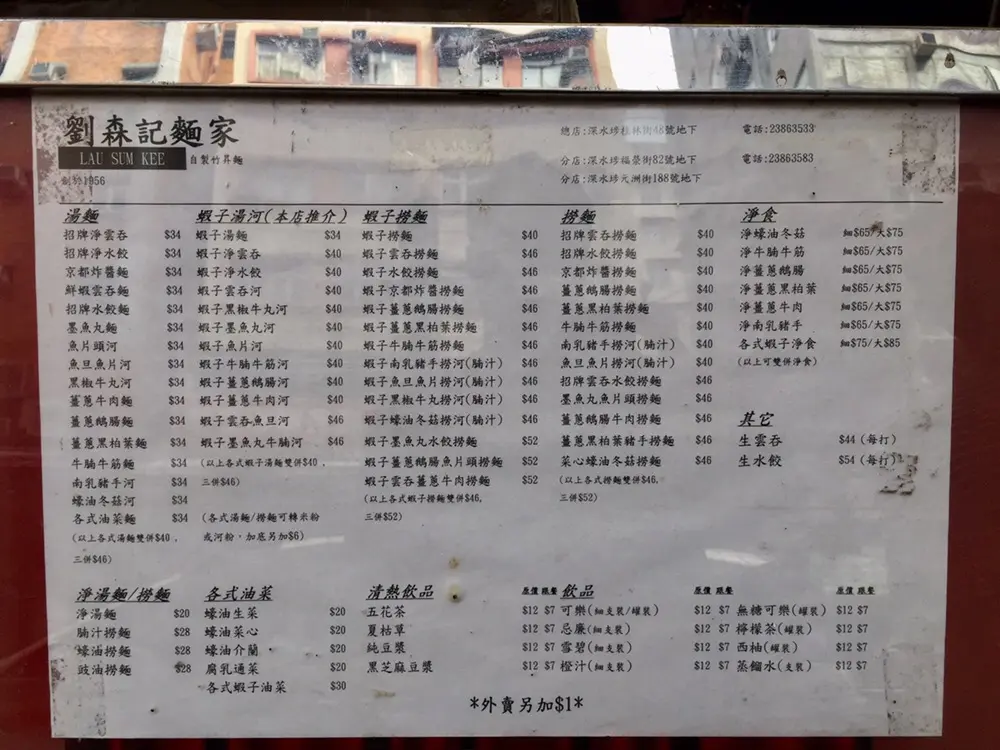 劉森記麵家
LAU SUM KEE 自製竹昇麵
創於1956
總店:深水埗桂林街48號地下 電話:23863533
分店:深水埗福榮街82號地下 電話:23863583
分店:深水埗元洲街188號地下
湯麵
招牌淨雲吞 $34
招牌淨水餃 $34
京都炸醬麵 $34
鮮蝦雲吞麵 $34
招牌水餃麵 $34
墨魚丸麵 $34
魚片頭河 $34
魚旦魚片河 $34
黑椒牛丸河 $34
薑蔥牛肉麵 $34
薑蔥鵝腸麵 $34
薑蔥黑柏葉麵 $34
牛腩牛筋麵 $34
南乳豬手河 $34
蠔油冬菇河 $34
各式油菜麵 $34
(以上各式湯麵雙併$40,
三併$46)
蝦子湯河(本店推介)
蝦子湯麵 $34
蝦子淨雲吞 $40
蝦子淨水餃 $40
蝦子雲吞河 $40
蝦子黑椒牛丸河 $40
蝦子墨魚丸河 $40
蝦子魚片河 $40
蝦子牛腩牛筋河 $40
蝦子薑蔥鵝腸河 $40
蝦子薑蔥牛肉河 $40
蝦子雲吞魚旦河 $46
蝦子墨魚丸牛腩河 $46
(以上各式蝦子湯麵雙併$40,
三併$46)
(各式湯麵/撈麵可轉米粉
或河粉，加底另加$6)
蝦子撈麵
蝦子撈麵 $40
蝦子雲吞撈麵 $46
蝦子水餃撈麵 $46
蝦子京都炸醬撈麵 $46
蝦子薑蔥鵝腸撈麵 $46
蝦子薑蔥黑柏葉撈麵 $46
蝦子牛腩牛筋撈麵 $46
蝦子南乳豬手撈河(腩汁) $46
蝦子魚旦魚片撈河(腩汁) $46
蝦子黑椒牛丸撈河(腩汁) $46
蝦子蠔油冬菇撈河(腩汁) $46
蝦子墨魚丸水餃撈麵 $52
蝦子薑蔥鵝腸魚片頭撈麵 $52
蝦子雲吞薑蔥牛肉撈麵 $52
(以上各式蝦子撈麵雙併$46,
三併$52)
撈麵
招牌雲吞撈麵 $40
招牌水餃撈麵 $40
京都炸醬撈麵 $40
薑蔥鵝腸撈麵 $40
薑蔥黑柏葉撈麵 $40
牛腩牛筋撈麵 $40
南乳豬手撈河(腩汁) $40
魚旦魚片撈河(腩汁) $40
招牌雲吞水餃撈麵 $46
墨魚丸魚片頭撈麵 $46
薑蔥鵝腸牛肉撈麵 $46
薑蔥黑柏葉豬手撈麵 $46
菜心蠔油冬菇撈麵 $46
(以上各式撈麵雙併$46,
三併$52)
淨食
淨蠔油冬菇 細$65/大$75
淨牛腩牛筋 細$65/大$75
淨薑蔥鵝腸 細$65/大$75
淨薑蔥黑柏葉 細$65/大$75
淨薑蔥牛肉 細$65/大$75
淨南乳豬手 細$65/大$75
各式蝦子淨食 細$75/大$85
(以上可雙併淨食)
其它
生雲吞 $44(每打)
生水餃 $54(每打)
淨湯麵/撈麵
淨湯麵 $20
腩汁撈麵 $28
蠔油撈麵 $28
豉油撈麵 $28
各式油菜
蠔油生菜 $20
蠔油菜心 $20
蠔油介蘭 $20
腐乳通菜 $20
各式蝦子油菜 $30
清熱飲品 原價 跟餐
五花茶 $12 $7
夏枯草 $12 $7
純豆漿 $12 $7
黑芝麻豆漿 $12 $7
飲品 原價 跟餐 原價 跟餐
可樂(細支裝/罐裝) $12 $7 無糖可樂(罐裝) $12 $7
忌廉(細支裝) $12 $7 檸檬茶(罐裝) $12 $7
雪碧(細支裝) $12 $7 西柚(罐裝) $12 $7
橙汁(細支裝) $12 $7 蒸餾水(支裝) $12 $7
*外賣另加$1*